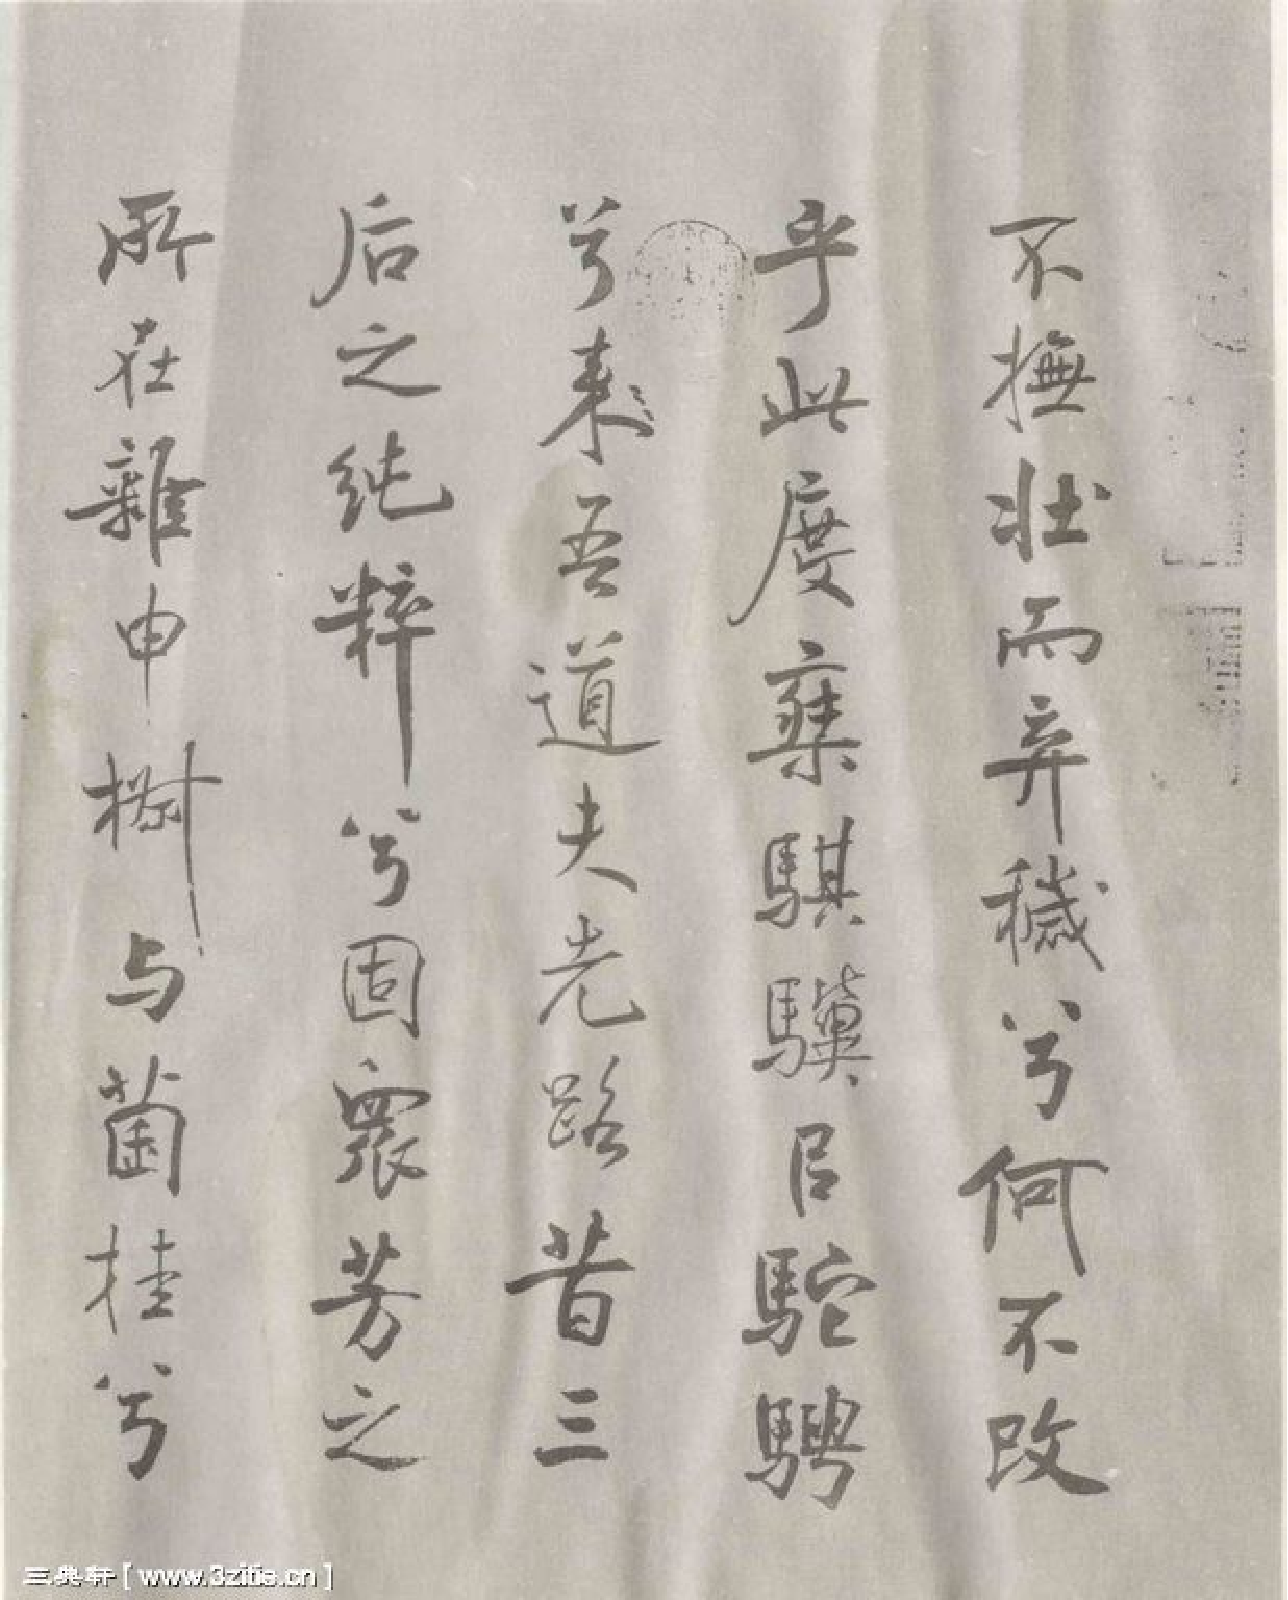 不撫壯而弃穢兮何不改
乎此度椉騏驥㠯駝騁
兮来吾道夫先路昔三
后之純粹兮固衆芳之
所在雜申樹与菌桂兮
[www.3zitie.cn]